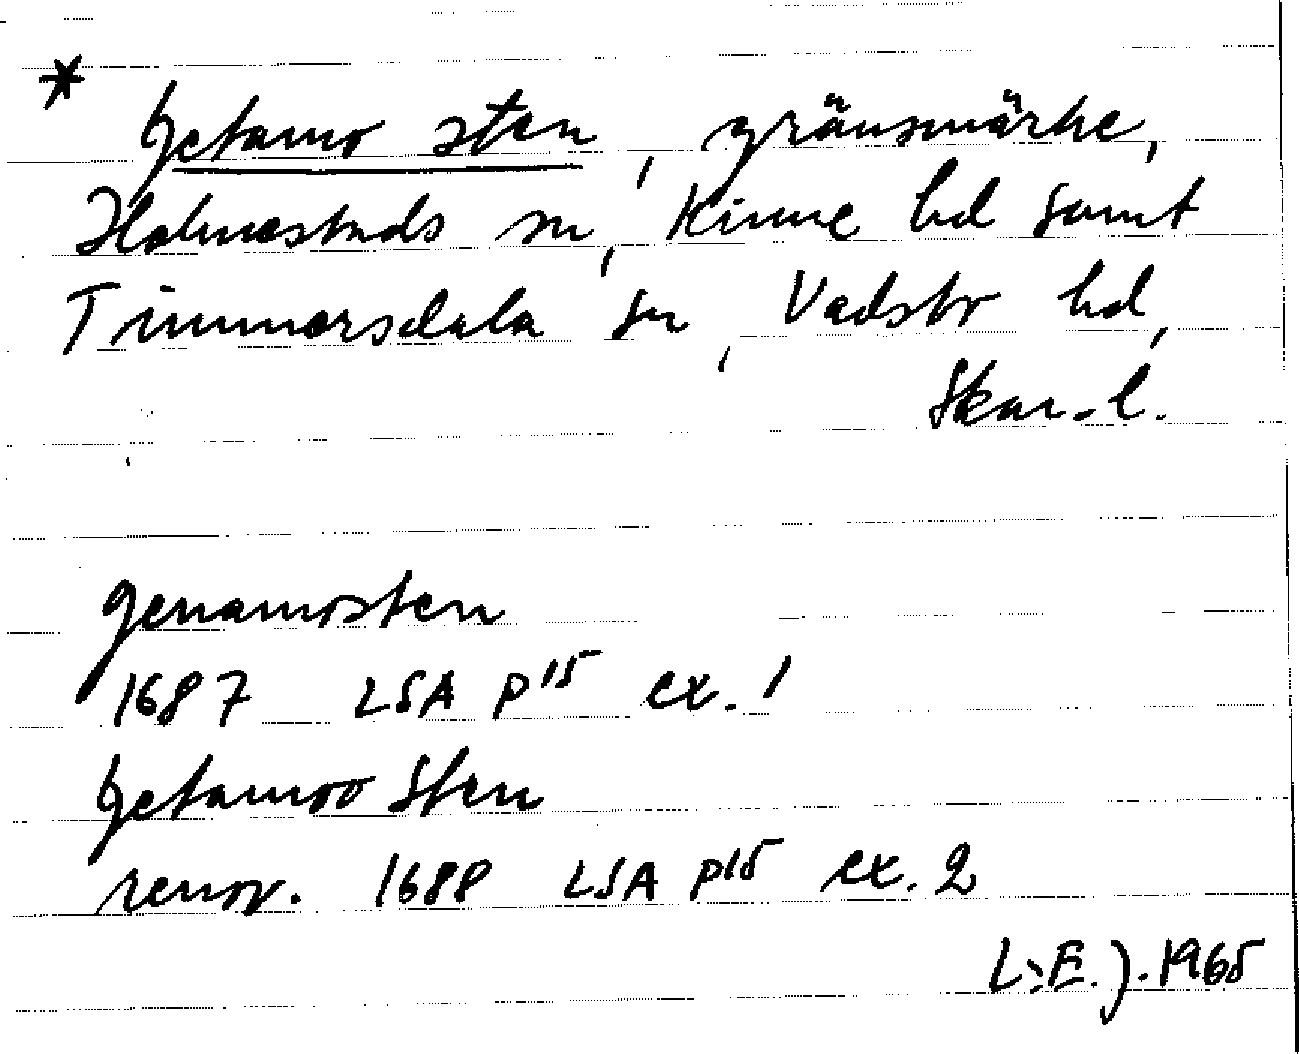 *
Getamo sten, gränsmärke,
Holmestads sn, Kinne hd samt
Timmersdala sn, Vadsbo hd,
Skar. l.
genamosten
1687 LSA P15 ex. 1
Getamoo Sten
renov. 1688 LSA P15 ex. 2
L:E. J. 1965